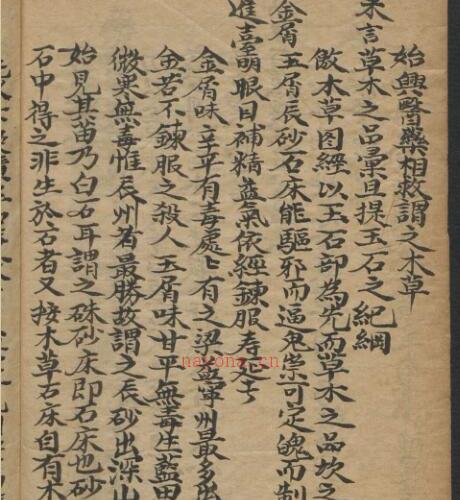 始興醫藥相救謂之本草
未言草木之品彙且提玉石之紀綱
敵本草图經以玉石部為先而草木之品次之
金屑玉屑辰砂石床能驅邪而逼鬼祟可定魄而制
進壼明眼目補精益氣依經鍊服寿延長
金屑味辛平有毒處〻有之梁益寧州最多出
金若不鍊服之殺人玉屑味甘平無毒生藍田
微寒無毒惟辰州者最勝故謂之辰砂出深山
始見其苗乃白石耳謂之硃砂床即石床也砂
石中得之非生於石者又按本草石床自有本
nayona.cn